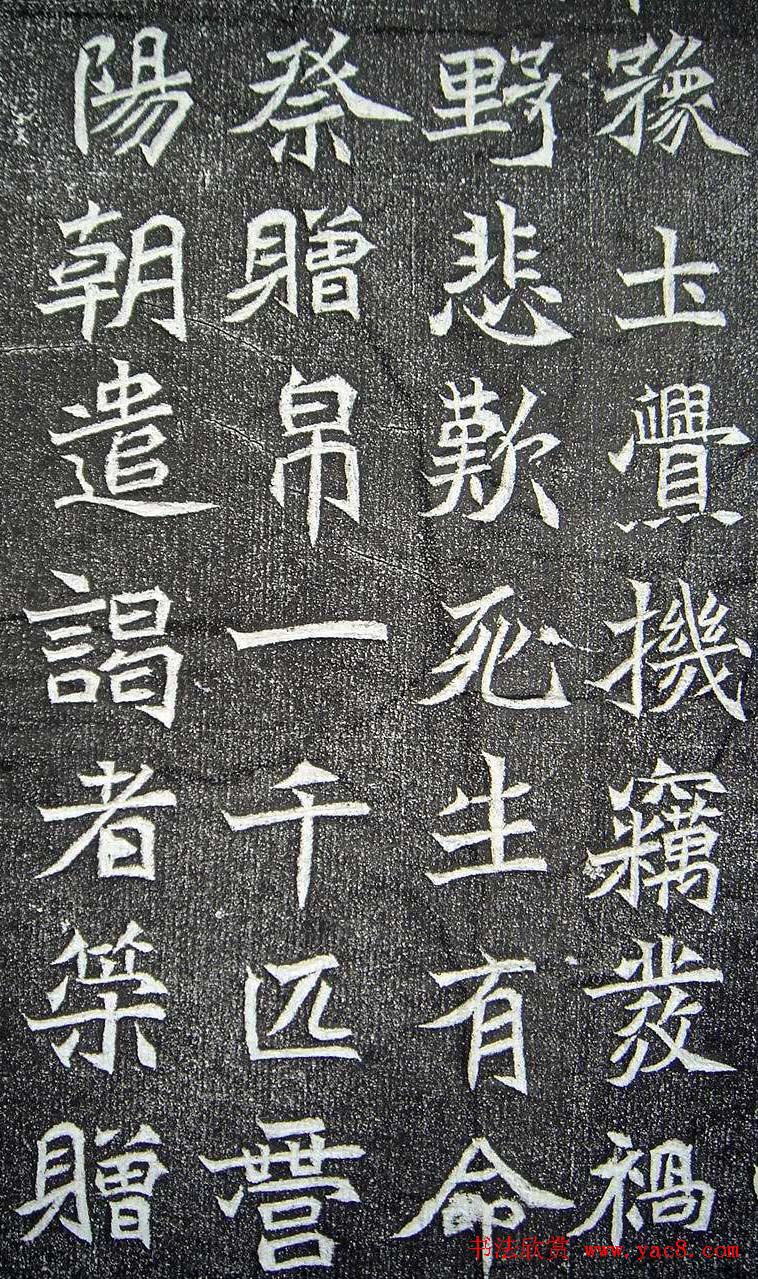 豫土釁機竊發禍
野悲歎死生有命
祭贈帛一千匹營
陽朝遣謁者策贈
书法欣赏 www.yac8.com